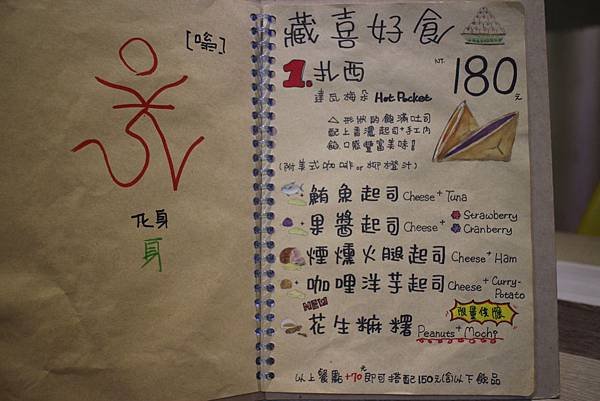 [嗡]
化身
身
藏喜好食
1.扎西
NT. 180元
達瓦梅朵 Hot Pocket
△形狀的飽滿吐司
配上香濃起司+手工內
餡,口感豐富美味!
(附美式咖啡or柳橙汁)
鮪魚起司 Cheese + Tuna
果醬起司 Cheese + Strawberry
Cranberry
煙燻火腿起司 Cheese + Ham
咖哩洋芋起司 Cheese + Curry-
Potato
NEW
花生麻糬 Peanuts + Mochi
限量供應
以上餐點+70元即可搭配150元(含)以下飲品